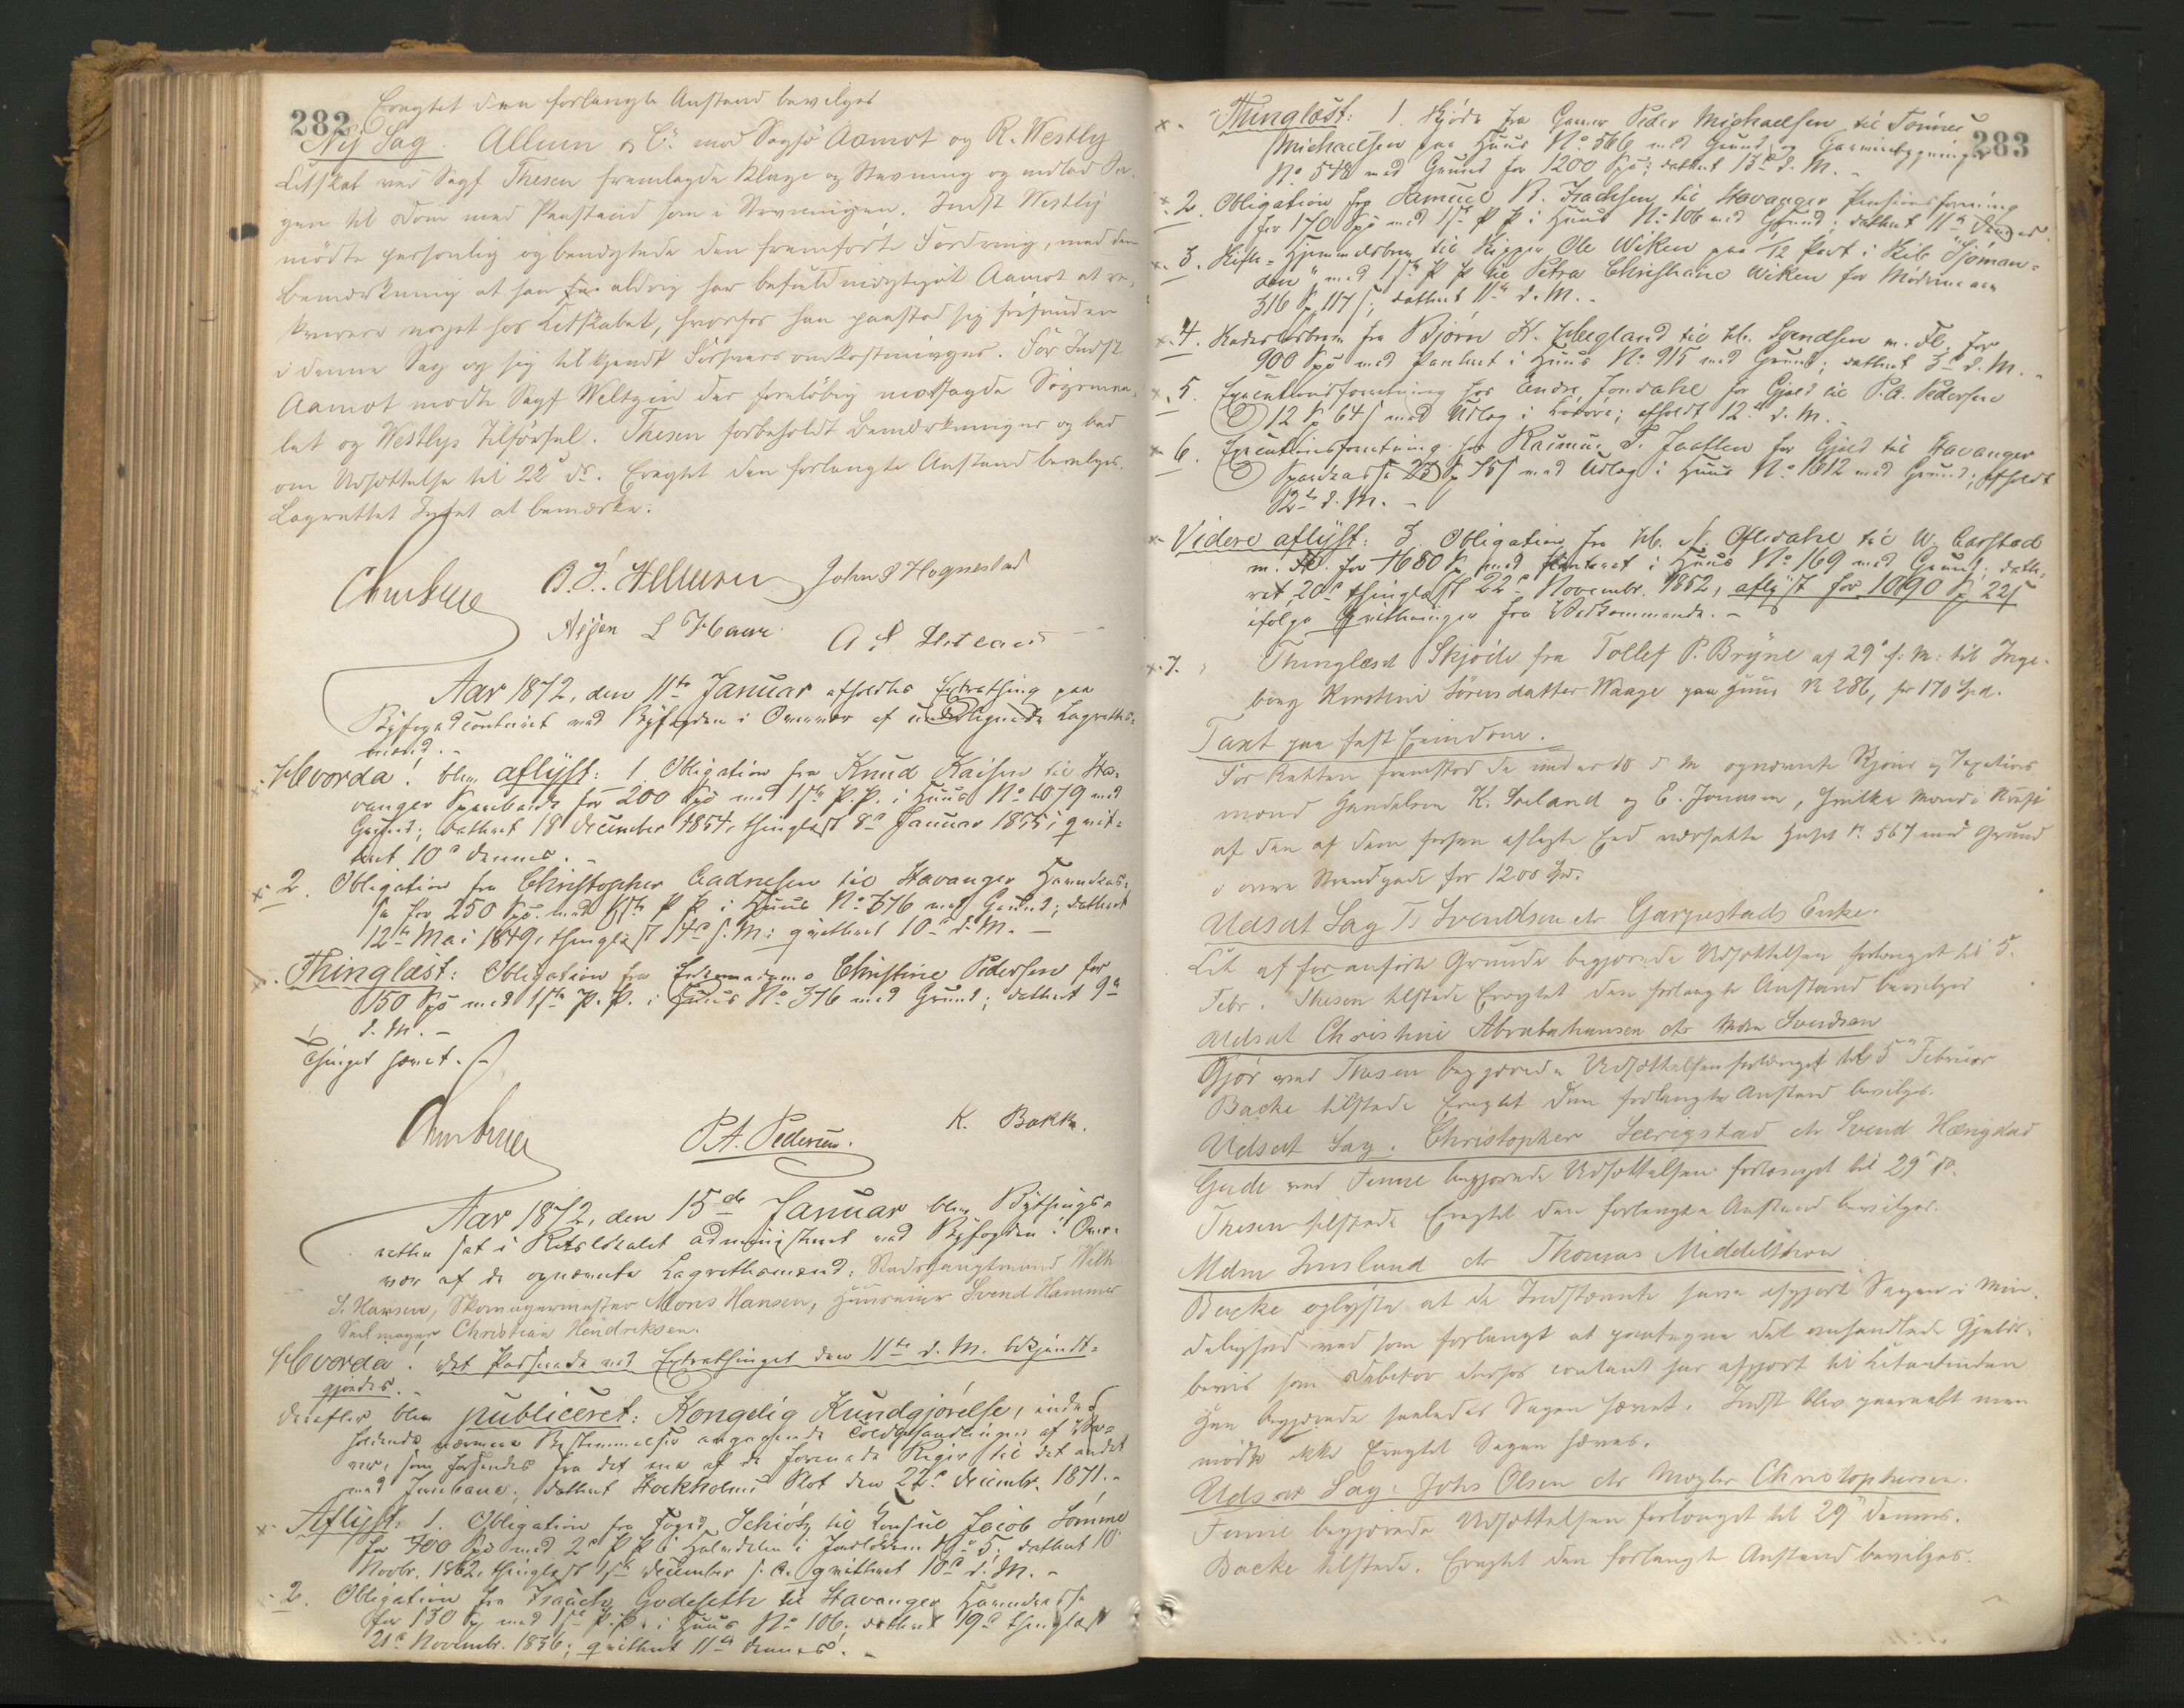 282
Eragtet den forlangte Anstand bevilges
Ny Sag. Allum & C° mod Sagfø Aamot og R. Westly
Citskab ved Sagf Thesen fremlagde Klage og Stevning og indlod Sa-
gen til Dom med Paastand som i Stevningen. Indst Westly
mødte personlig og benegtede den fremførte Fordring, med den
Bemærkning at han aldrig har befuldmægtiget Aamot at re-
kvirere noget hos Citskabet, hvorfor han paastod sig frifunden
i denne Sag og sig tilkjendt Forsvarsomkostninger. For Indst
Aamot mødte Sagf Weltzin der foreløbig modsagde Søgsmaa-
let og Westlys Tilførsel. Thesen forbeholdt Bemærkninger og bad
om Udsættelse til 22 ds. Eragtet den forlangte Anstand bevilges.
Lagrettet Intet at bemærke.
John S Hognestad
Aar 1872, den 11te Januar afholdtes Extrathing paa
Byfogdcontoiret ved Byfogden i Overvær af undertegnede Lagrettes-
mænd.
Hvorda! blev aflyst: 1. Obligation fra Knud Kaisen til Sta-
vanger Sparebank for 200 Spd med 1ste P.P. i Huus No 1079 med
Grund; dateret 18 December 1854, thinglæst 8de Januar 1855; qvit-
teret 10de dennes.
2. Obligation fra Christopher Aadnesen til Stavanger Havnekas-
se for 250 Spd. med 1ste P P i Huus No 376 med Grund; dateret
12te Mai 1849, thinglæst 14de s. M.; qvitteret 10de d. M.
Thinglæst: Obligation fra Enkemadame Christine Pedersen for
150 Spd med 1ste P.P. i Huus No 376 med Grund; dateret 9de
d. M.
Thinget hævet.
P. A. Pedersen.
K. Bakke.
Aar 1872, den 15de Januar blev Bythings-
retten sat i Retslokalet administreret ved Byfogden i Over-
vær af de opnævnte Lagrettesmænd: Stadshauptmand Wilh
S. Hansen, Skomagermester Mons Hansen, Huuseier Svend Hammer
Seilmager Christian Hendriksen.
Hvorda! det Passerede ved Extrathinget den 11te d. M. bekjendt-
gjordes.
Derefter blev publiceret: Kongelig Kundgjørelse, inde-
holdende nærmere Bestemmelser angaaende Toldbehandlingen af Va-
rer, som forsendes fra det ene af de forenede Riger til det andet
med Jernbane; dateret Stockholms Slot den 22de Decembr. 1871.
Aflyst: 1. Obligation fra Foged Schiøtz til Consul Jacob Sømme
for 700 Spd med 2de P P i No 5. dateret 10
Novbr. 1862, thinglæst 1ste December s. A. qvitteret 10de d. M.
2. Obligation fra Isach Godeseth til Stavanger Havnekasse
for 130 Spd med 1ste P.P. i Huus No 106; dateret 19de thinglæst
21de Novembr. 1836; qvitteret 11te dennes.
283
Thinglæst: 1. Skjøde fra Garver Peder Michaelsen til Tønnes
Michaelsen paa Huus No 566 med Grund og Garveribygninger
No 548 med Grund for 1200 Spd; dateret 13de d. M.
2. Obligation fra Samuel B. Isachsen til Stavanger Pensionsforening
for 170 Spd med 1ste P P i Huus No 106 med Grund; dateret 11te dennes
3. Skifte-Hjemmelsbrev til Skipper Ole Wiken paa 1/12 Part i Skib "Sjøman-
den" med 1ste P P til Petra Christiane Wiken for Mødrenearv
316 Sp 117 s; dateret 11te d. M.
4. Kadaskionsbrev fra Bjørn K. Hegland til H. Svendsen m. Fl. for
900 Spd med Panteret i Huus No 915 med Grund; dateret 3de d. M.
5. Executionsforretning hos Endre Jondahl for Gjeld til P. A. Pedersen
12 Sp 64 s med Udlæg i Løsøre; afholdt 12te d. M.
6. Executionsforretning hos Rasmus T. Jaatten for Gjeld til Stavanger
Sparekasse 23 Sp 75 s med Udlæg i Huus No 1612 med Grund; afholdt
12te d. M.
Videre aflyst: 3. Obligation fra H. N. Ofledahl til W. Carstad
m. Fl. for 1680 Sp med Panteret i Huus No 169 med Grund; date-
ret 20de thinglæst 22de Novembr. 1852, aflyst for 1090 Sp 22 s
ifølge Qvitteringer fra Vedkommende.
7. Thinglæst Skjøde fra Tollef P. Bryne af 29de f. M. til Inge-
borg Kirstine Sørensdatter Waage paa Huus No 286, for 170 Spd.
Taxt paa fast Eiendom.
For Retten fremstod de under 10 d M opnævnte Skjøns og Taxations
mænd Handelsm K. Soeland og E. Jonassen, hvilke Mænd i Kraft
af den af dem forhen aflagte Eed værsatte Huset No 567 med Grund
i øvre Strandgade for 1200 Spd.
Udsat Sag T. Svendsen ctr Garpestads Enke.
Cit af foranførte Grunde begjærede Udsættelsen forlænget til 5.
Febr. Thesen tilstede Eragtet den forlangte Anstand bevilges
Udsat Christine Abrahamsen ctr Svendsen
Gjør ved Thesen begjærede Udsættelsen forlænget til 5te Februar
Backe tilstede Eragtet den forlangte Anstand bevilges.
Udsat Sag. Christopher Seerigstad ctr Svend Hærigstad
Gude ved Finne begjærede Udsættelsen forlænget til 29de ds.
Thesen tilstede Eragtet den forlangte Anstand bevilges.
Mdm Imsland ctr Thomas Middelthon
Backe oplyste at de Indstævnte have afgjort Sagen i Min-
delighed ved som forlangt at paategne det omhandlede Gjelds-
bevis som Debitor derfor contant har afgjort til Citantinden
Han begjærede saaledes Sagen hævet. Indst blev paaraabt men
mødte ikke Eragtet Sagen hæves.
Udsat Sag. Johs Olsen ctr Mægler Christophersen.
Finne begjærede Udsættelsen forlænget til 29de dennes.
Backe tilstede. Eragtet den forlangte Anstand bevilges.